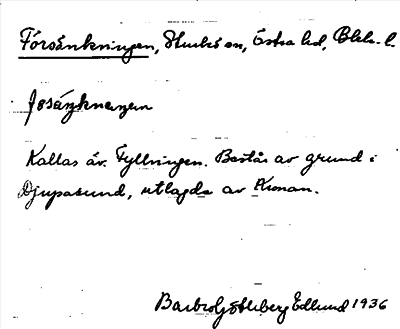 Försänkningen, Sturkö sn, Östra hd,Blek. l.
Kallas äv. Fyllningen. Består av grund i
Djupasund, utlagda av Kronan.
Barbro Götheberg Edlund 1936